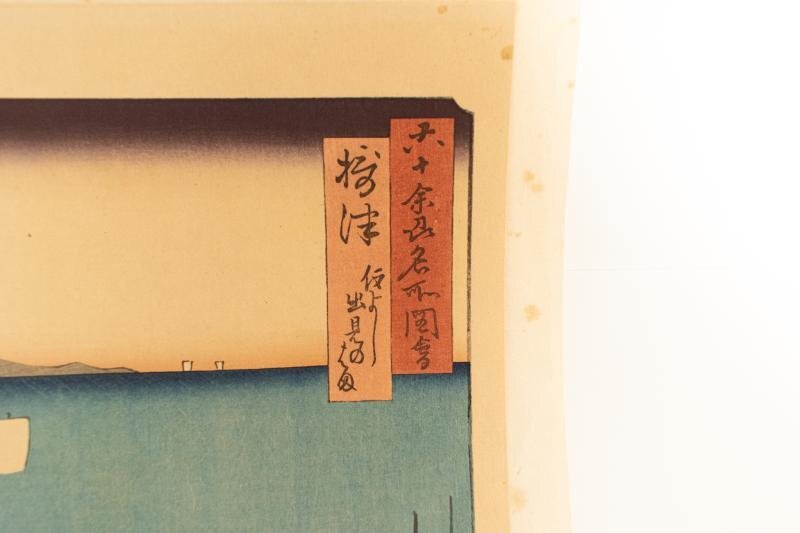 六十余州名所図会
摂津
住よし
出見のはま